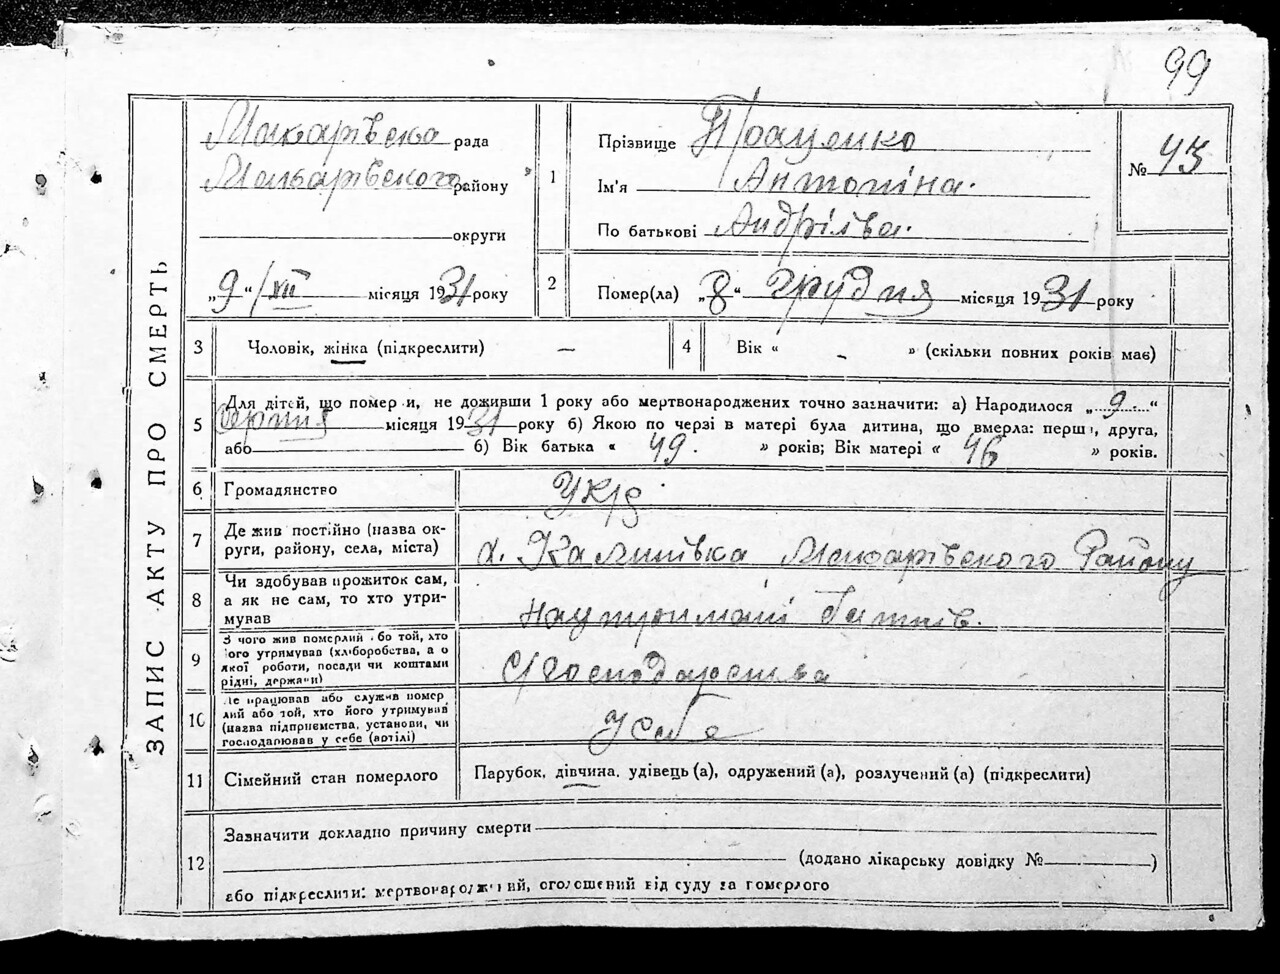 99
ЗАПИС АКТУ ПРО СМЕРТЬ
Макарівська рада
Макарівського району
округи
„9“ / XII місяця 1931 року
1
Прізвище Проценко
Ім'я Антоніна.
По батькові Андріїва.
№ 43
2 Помер(ла) „8“ грудня місяця 1931 року
3 Чоловік, жінка (підкреслити) —
4 Вік « - » (скільки повних років має)
5 Для дітей, що померли, не доживши 1 року або мертвонароджених точно зазначити: а) Народилося „9“
Серпня місяця 1931 року б) Якою по черзі в матері була дитина, що вмерла: перша, друга,
або б) Вік батька « 49. » років; Вік матері « 46 » років.
6 Громадянство УКР
7 Де жив постійно (назва округи, району, села, міста) х. Калинівка Макарівського Району
8 Чи здобував прожиток сам, а як не сам, то хто утримував
На утриманні батьків.
9 З чого жив померлий або той, хто його утримував (хліборобства, а о якої роботи, посади чи коштами рідні, держави)
С/господарства
10 Де працював або служив померлий або той, хто його утримував (назва підприємства, установи, чи господарював у себе (вотілі)
У себе
11 Сімейний стан померлого Парубок, дівчина, удівець (а), одружений (а), розлучений (а) (підкреслити)
12 Зазначити докладно причину смерти
(додано лікарську довідку № )
або підкреслити: мертвонароджений, оголошений від суду за померлого